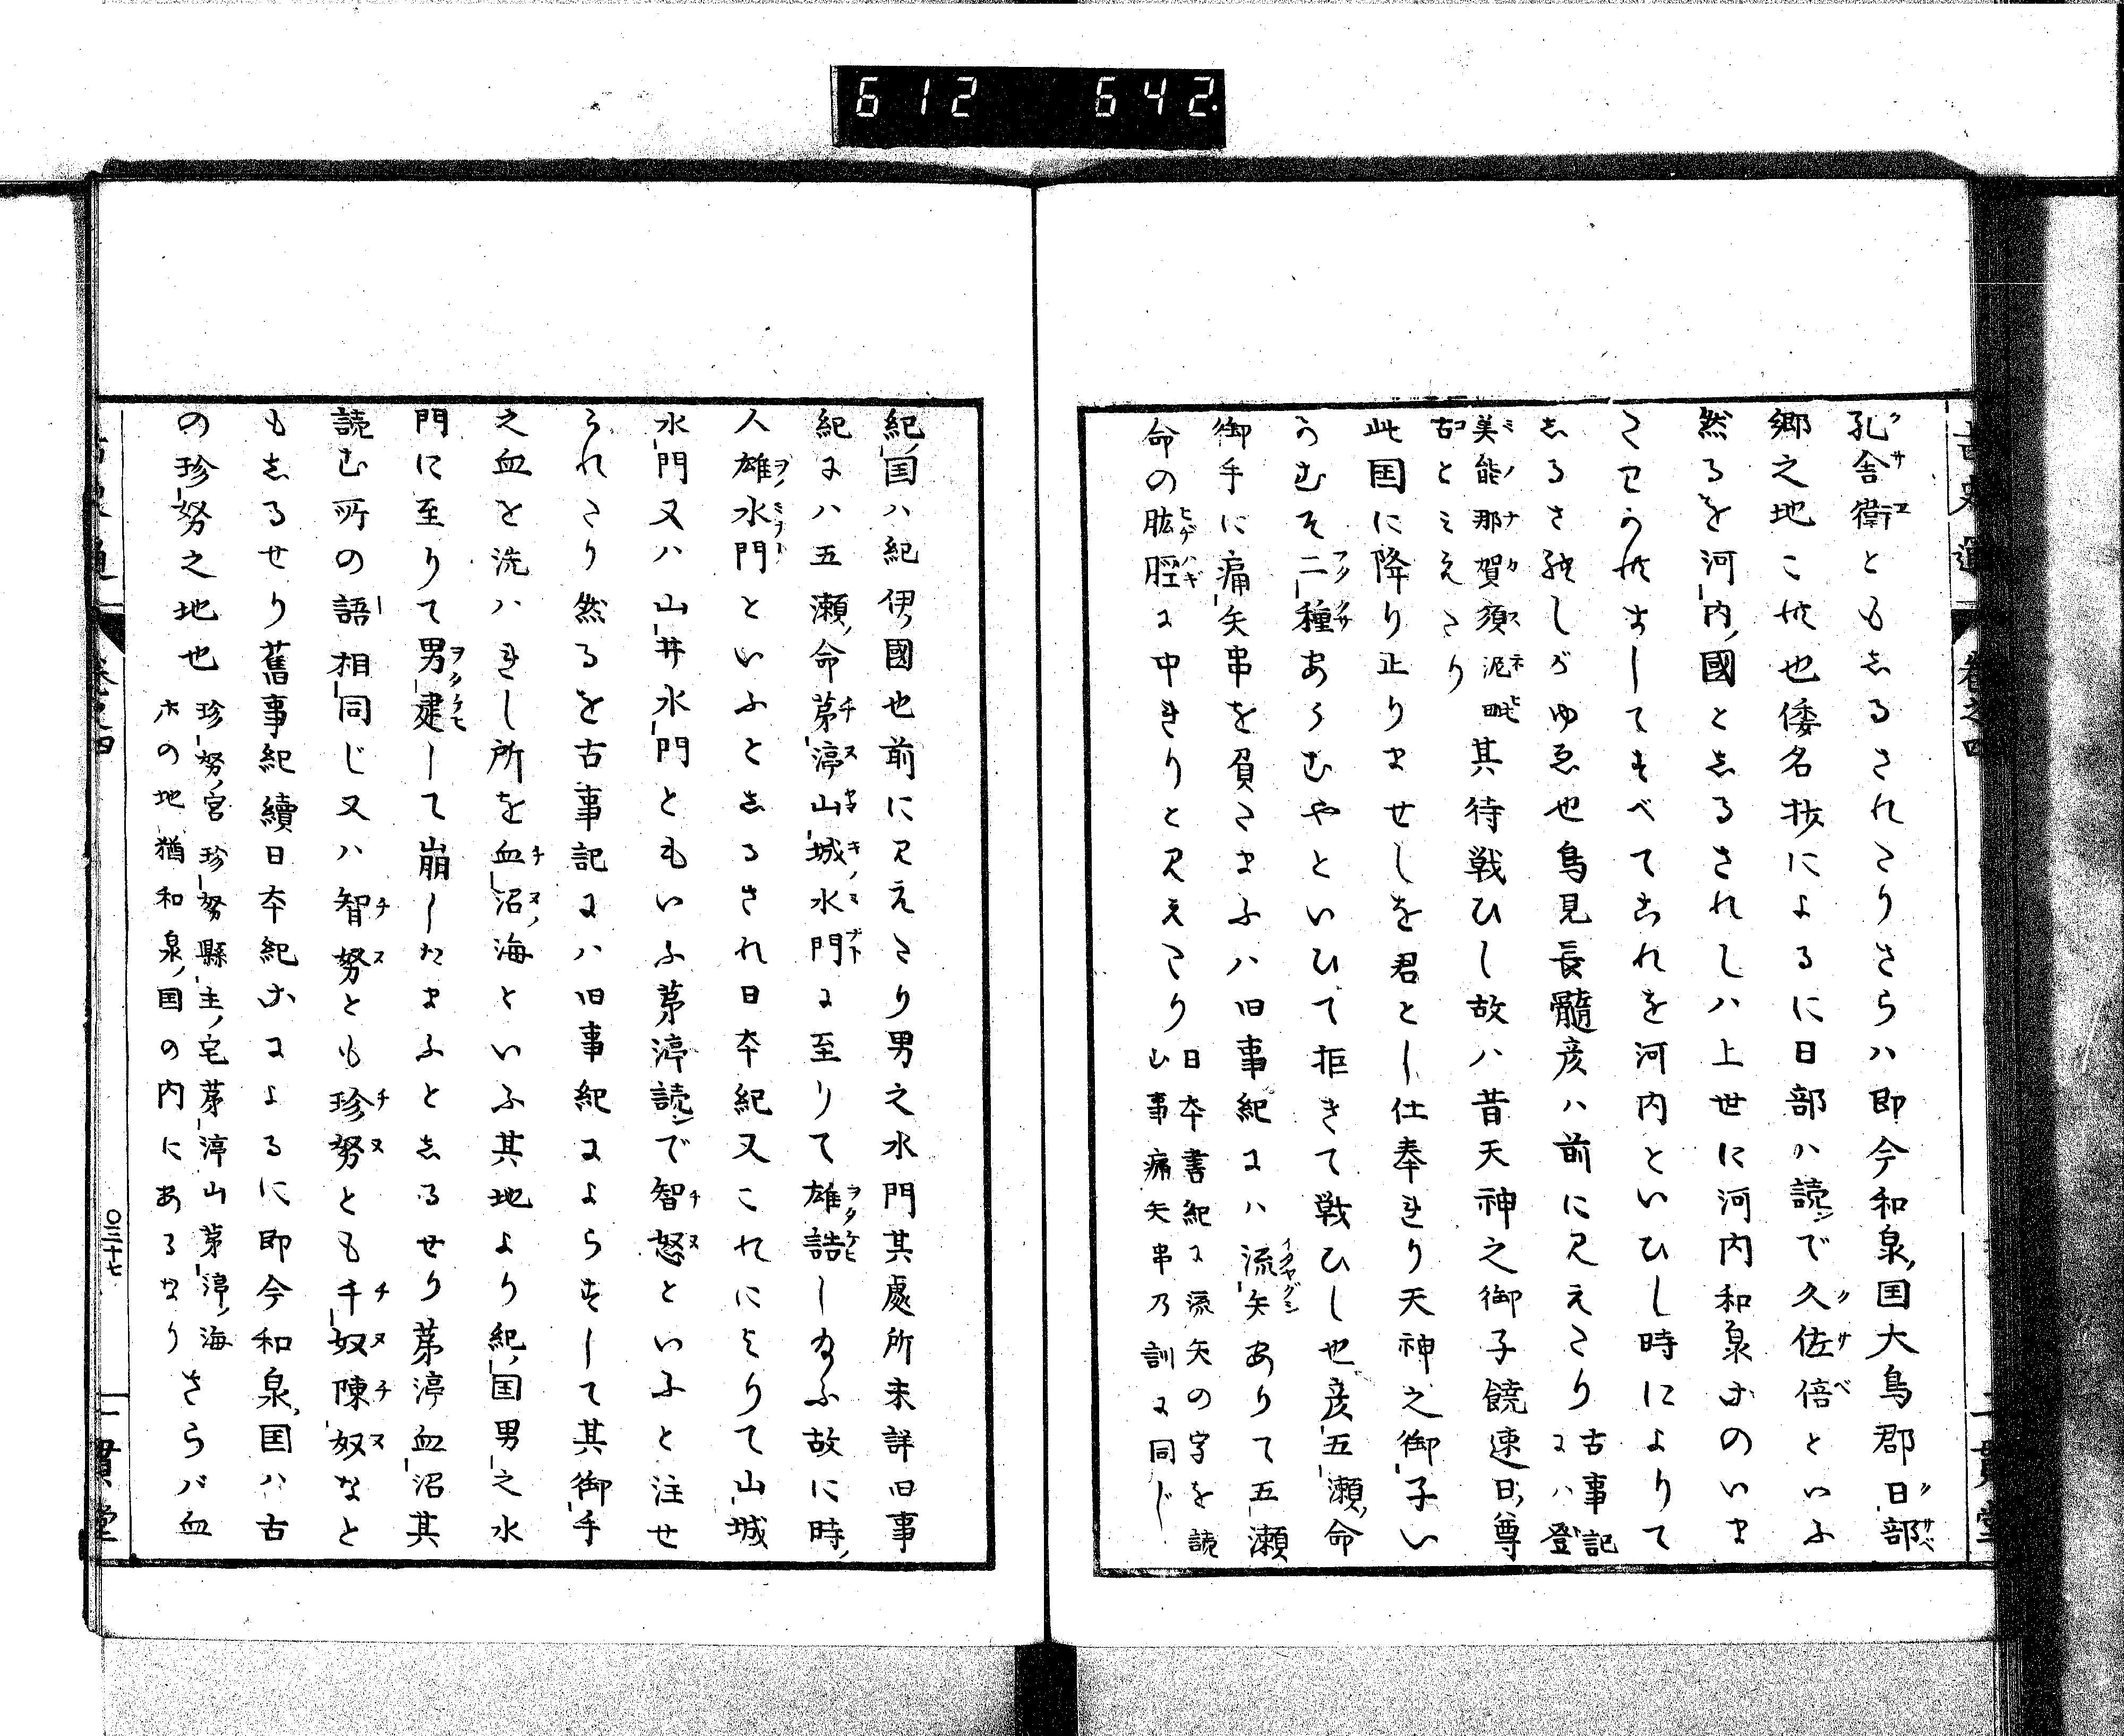 612 642
古史通 卷之四 一貫堂
孔舎衛ともしるされたりさらハ即今和泉国大鳥郡日部
郷之地これ也倭名抄によるに日部ハ読んで久佐倍といふ
然るを河内國としるされしハ上世に河内和泉等のいま
たわかれすしてすべてこれを河内といひし時によりて
しるされしがゆゑ也鳥見長髓彦ハ前に見えたり古事記にハ登
美能那賀須泥毗古とみえたり其待戦ひし故ハ昔天神之御子饒速日尊
此国に降り止りませしを君とし仕奉れり天神之御子い
かむそ二種あらむやといひて拒きて戦ひし也彦五瀬命
御手に痛矢串を負たまふハ旧事紀にハ流矢ありて五瀬
命の肱脛に中れりと見えたり日本書紀に流矢の字を読
ひ事痛矢串乃訓に同じ
紀国ハ紀伊國也前に見えたり男之水門其處所未詳旧事
紀にハ五瀬命茅渟山城水門に至りて雄誥し給ふ故に時
人雄水門といふとしるされ日本紀又これによりて山城
水門又ハ山井水門ともいふ茅渟読んで智怒といふと注せ
られたり然るを古事記にハ旧事紀によらすして其御手
之血を洗ハれし所を血沼海といふ其地より紀国男之水
門に至りて男建して崩したまふとしるせり茅渟血沼其
読む所の語相同じ又ハ智努とも珍努とも千奴陳奴なと
もしるせり舊事紀續日本紀等によるに即今和泉国ハ古
の珍努之地也珍努宮珍努縣主宅茅渟山茅渟海
ホの地猶和泉国の内にあるなりさらバ血
〇三十七
一貫堂